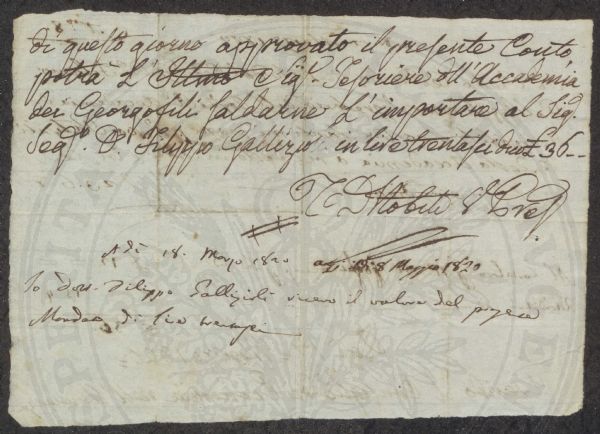 di questo giorno approvato il presente Conto
potrà L' Illmo Sigr. Tesoriere dell'Accademia
dei Georgofili saldarne L'importare al Sigr.
Segr. Dr. Filippo Gallizioli in lire trentasei dico £ 36--
P. De
A dì 18. Marzo 1820
18 Maggio 1820
Io Dott. Filippo Gallizioli ricevo il valore del presente
Mandato di lire trentasei